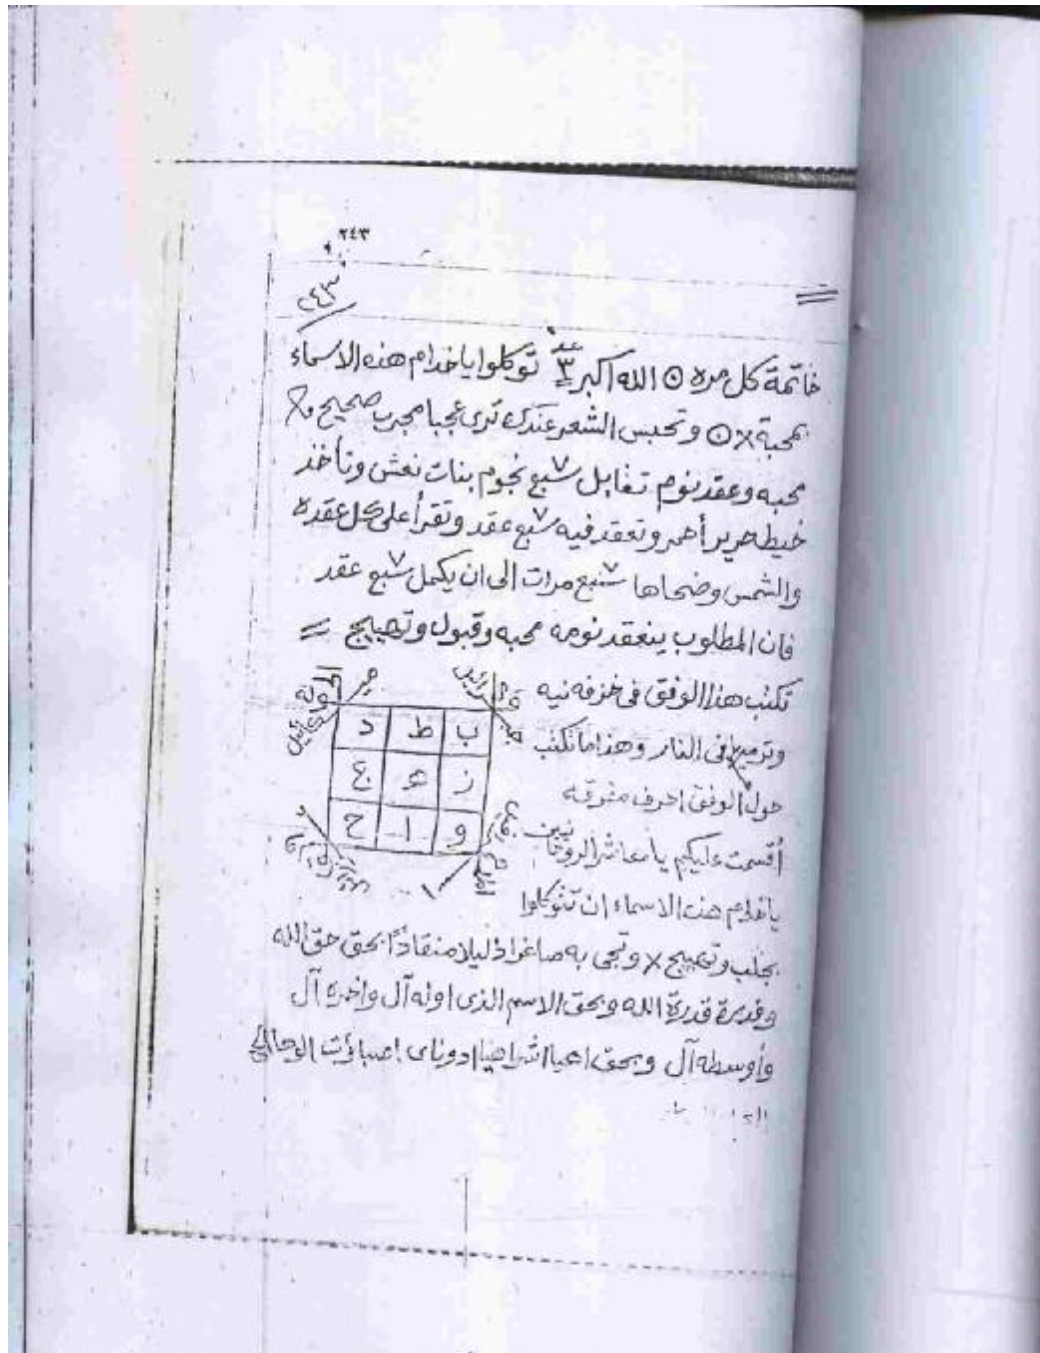 ٢٤٣
٢٤٣
خاتمة كل مره ⊙ الله اكبر ٣ عدد توكلوا يا خدام هذه الاسماء
بمحبة × ⊙ وتحبس الشعر عندك ترى عجبا مجرب صحيح
محبه وعقد نوم تقابل سبع ٧ نجوم بنات نعش وتأخذ
خيط حرير أحمر وتعقد فيه سبع ٧ عقد وتقرأ على كل عقده
والشمس وضحاها سبع ٧ مرات الى ان يكمل سبع ٧ عقد
فان المطلوب ينعقد نومه محبه وقبول وتهييج =
تكتب هذا الوفق فى خزفه نيه
وترميها فى النار وهذا ما تكتب
حول الوفق احرف مفرقه
ب ط د
ز ه ع
و ا ح
أقسمت عليكم يا معاشر الروحانيين
يا خدام هذه الاسماء ان تتوكلوا
بجلب وتهييج × وتجى به صاغرا ذليلا منقادًا بحق حق الله
وقدرة قدرة الله وبحق الاسم الذى اوله آل واخره آل
وأوسطه آل وبحق اهيا اشراهيا ادوناى اصباؤت